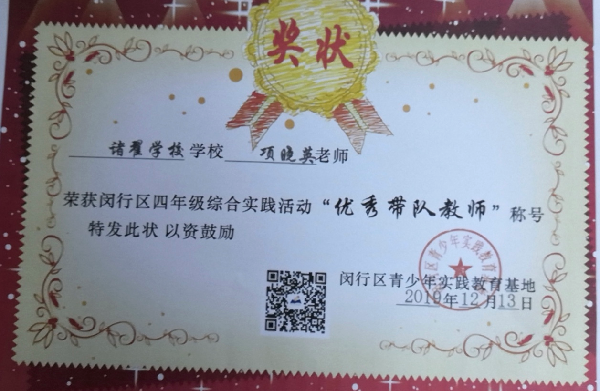 奖状
诸翟学校学校 项晓英老师
荣获闵行区四年级综合实践活动“优秀带队教师”称号
特发此状 以资鼓励
闵行区青少年实践教育基地
2019年12月13日